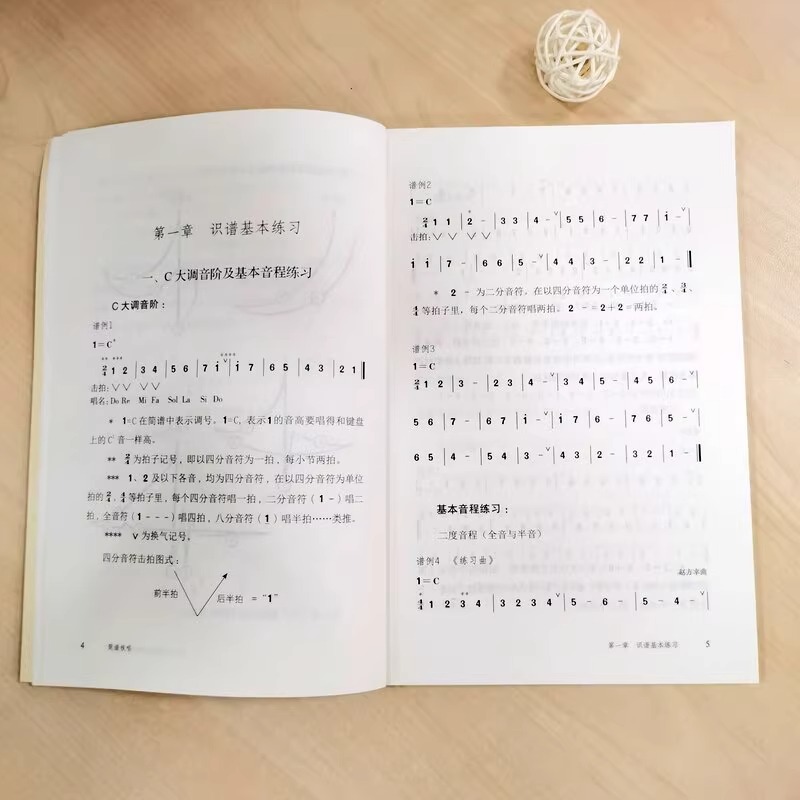 第一章 识谱基本练习
一、C大调音阶及基本音程练习
C大调音阶：
谱例1
1=C*
** ***                    ****
2/4 1 2 | 3 4 | 5 6 | 7 i ∨ | i 7 | 6 5 | 4 3 | 2 1 ‖
击拍：∨ ∨ ∨ ∨
唱名：Do Re Mi Fa Sol La Si Do
* 1=C在简谱中表示调号。1=C，表示1的音高要唱得和键盘
上的C¹音一样高。
** 2/4为拍子记号，即以四分音符为一拍，每小节两拍。
*** 1、2及以下各音，均为四分音符，在以四分音符为单位
拍的2/4、3/4等拍子里，每个四分音符唱一拍，二分音符（1 -）唱二
拍，全音符（1 - - -）唱四拍，八分音符（1）唱半拍……类推。
**** ∨为换气记号。
四分音符击拍图式：
前半拍 后半拍 = “1”
4 简谱视唱
谱例2
1=C
*
2/4 1 1 | 2 - | 3 3 | 4 - ∨ | 5 5 | 6 - | 7 7 | i - ∨ |
击拍：∨ ∨ ∨ ∨
i i | 7 - | 6 6 | 5 - ∨ | 4 4 | 3 - | 2 2 | 1 - ‖
* 2 - 为二分音符。在以四分音符为一个单位拍的2/4、3/4、
4/4等拍子里，每个二分音符唱两拍。2 - = 2 + 2 = 两拍。
谱例3
1=C
2/4 1 2 | 3 - | 2 3 | 4 - ∨ | 3 4 | 5 - | 4 5 | 6 - ∨ |
5 6 | 7 - | 6 7 | i - ∨ | i 7 | 6 - | 7 6 | 5 - ∨ |
6 5 | 4 - | 5 4 | 3 - ∨ | 4 3 | 2 - | 3 2 | 1 - ‖
基本音程练习：
二度音程（全音与半音）
谱例4 《练习曲》
赵方幸曲
1=C
* **
4/4 1 2 3 4 | 3 2 3 4 ∨ | 5 - 6 - | 5 - 4 - ∨ |
第一章 识谱基本练习 5